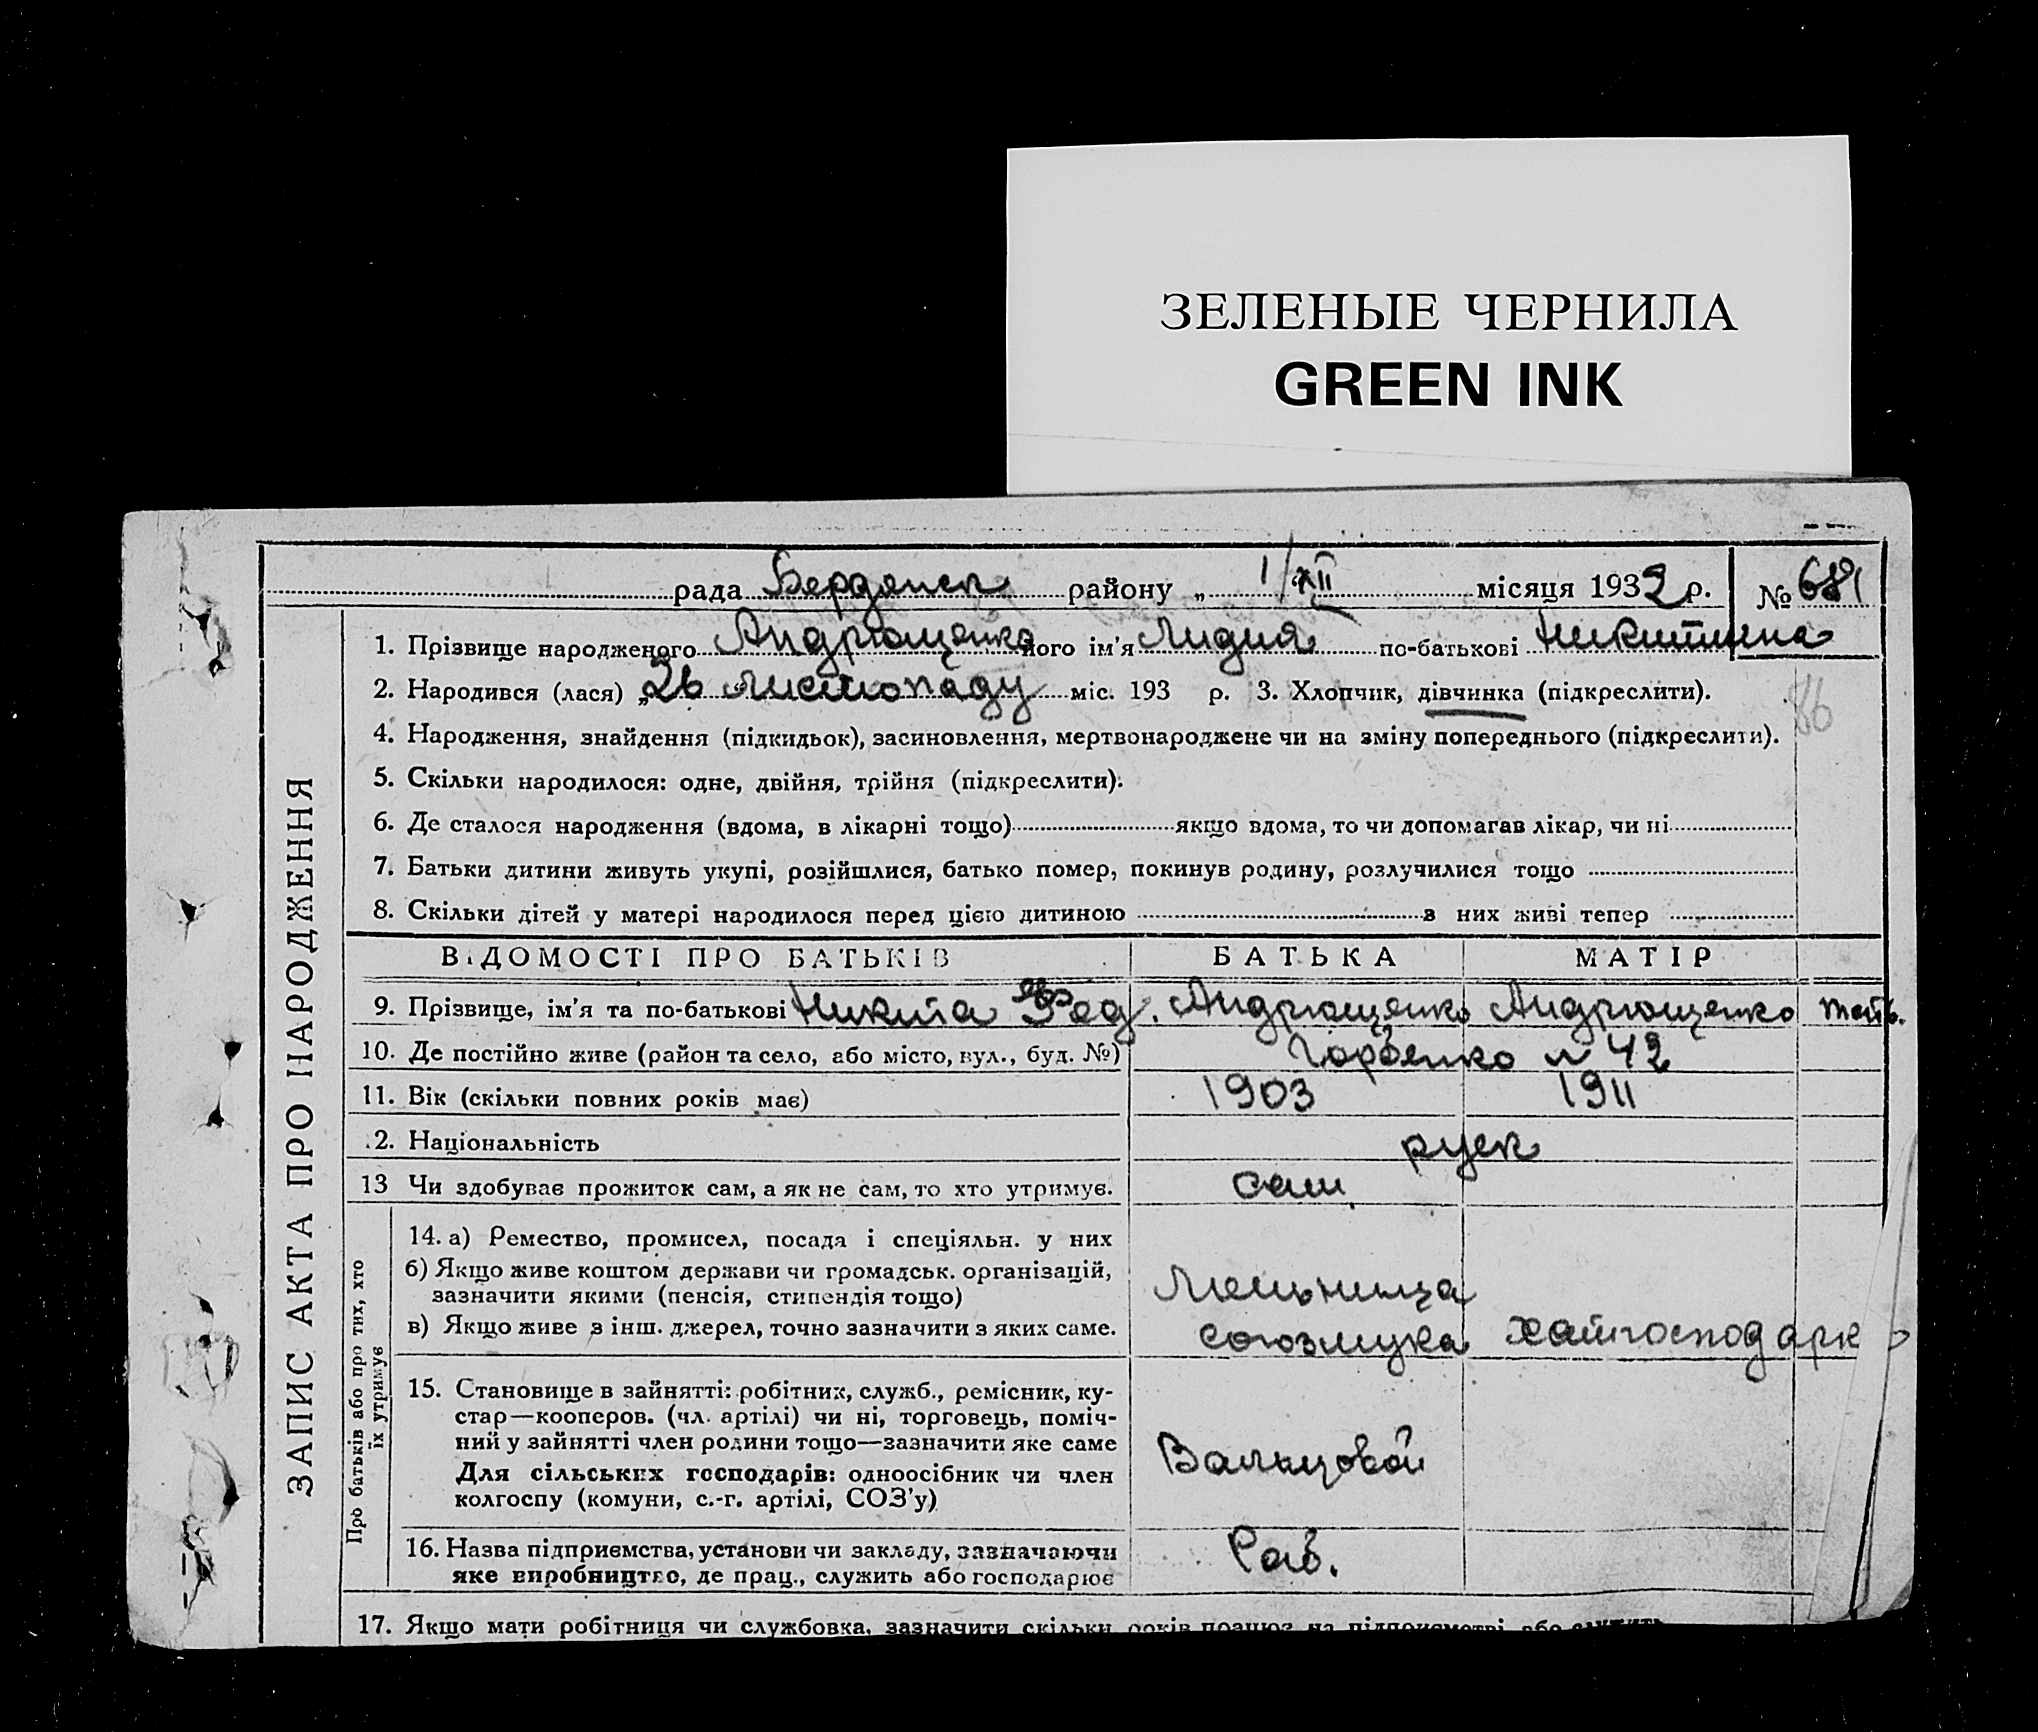 ЗЕЛЕНЫЕ ЧЕРНИЛА
GREEN INK
рада Бердянск району „ 1/XII місяця 1932 р. № 681
1. Прізвище народженого Андрющенко його ім'я Лидия по-батькові Никитична
2. Народився (лася) „26 листопаду міс. 193 р. 3. Хлопчик, дівчинка (підкреслити).
86
4. Народження, знайдення (підкидьок), засиновлення, мертвонароджене чи на зміну попереднього (підкреслити).
5. Скільки народилося: одне, двійня, трійня (підкреслити).
6. Де сталося народження (вдома, в лікарні тощо) якщо вдома, то чи допомагав лікар, чи ні
7. Батьки дитини живуть укупі, розійшлися, батько помер, покинув родину, розлучилися тощо
8. Скільки дітей у матері народилося перед цією дитиною з них живі тепер
ВІДОМОСТІ ПРО БАТЬКІВ БАТЬКА МАТІР
9. Прізвище, ім'я та по-батькові Никита Фед. Андрющенко Андрющенко
10. Де постійно живе (район та село, або місто, вул., буд. №) Горбенко № 42
11. Вік (скільки повних років має) 1903 1911
2. Національність руск
13 Чи здобуває прожиток сам, а як не сам, то хто утримує. сам
14. а) Ремество, промисел, посада і спеціяльн. у них
б) Якщо живе коштом держави чи громадськ. організацій,
зазначити якими (пенсія, стипендія тощо) Мельница
в) Якщо живе з інш. джерел, точно зазначити з яких саме. союзмука хатгосподарк
15. Становище в зайнятті: робітник, служб., ремісник, ку-
стар—кооперов. (чл. артілі) чи ні, торговець, поміч-
ний у зайнятті член родини тощо—зазначити яке саме Вальцовой
Для сільських господарів: одноосібник чи член
колгоспу (комуни, с.-г. артілі, СОЗ'у)
16. Назва підприємства, установи чи закладу, зазначаючи Раб.
яке виробництво, де прац., служить або господарює
17. Якщо мати робітниця чи службовка, зазначити скільки років працює на підприємстві або служить
ЗАПИС АКТА ПРО НАРОДЖЕННЯ
Про батьків або про тих, хто
їх утримує